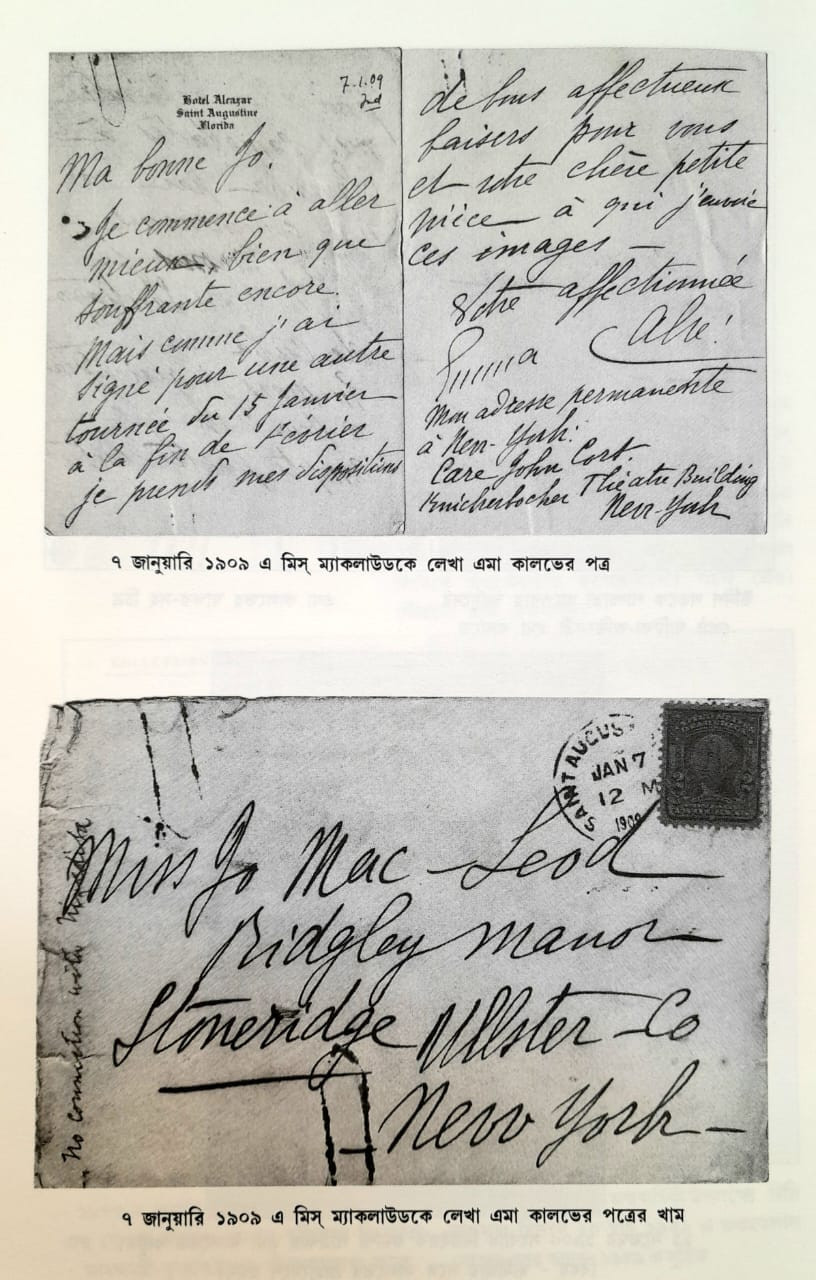 Hotel Alcazar
Saint Augustine
Florida
7.1.09
2nd
Ma bonne Jo.
Je commence à aller
mieux, bien que
souffrante encore.
Mais comme j'ai
signé pour une autre
tournée du 15 Janvier
à la fin de Février
je prends mes dispositions
de bons affectueux
baisers pour vous
et votre chère petite
nièce à qui j'envoie
ces images —
Votre affectionnée
Emma Calvé!
Mon adresse permanente
à New-York:
Care John Cort.
Knickerbocker Théatre Building
New-York
৭ জানুয়ারি ১৯০৯ এ মিস্ ম্যাকলাউডকে লেখা এমা কালভের পত্র
SAINT AUGUS
JAN 7
12 M
1909
Miss Jo Mac-Leod
Ridgley manor
Stoneridge Ullster-Co
New York-
No connection with
৭ জানুয়ারি ১৯০৯ এ মিস্ ম্যাকলাউডকে লেখা এমা কালভের পত্রের খাম